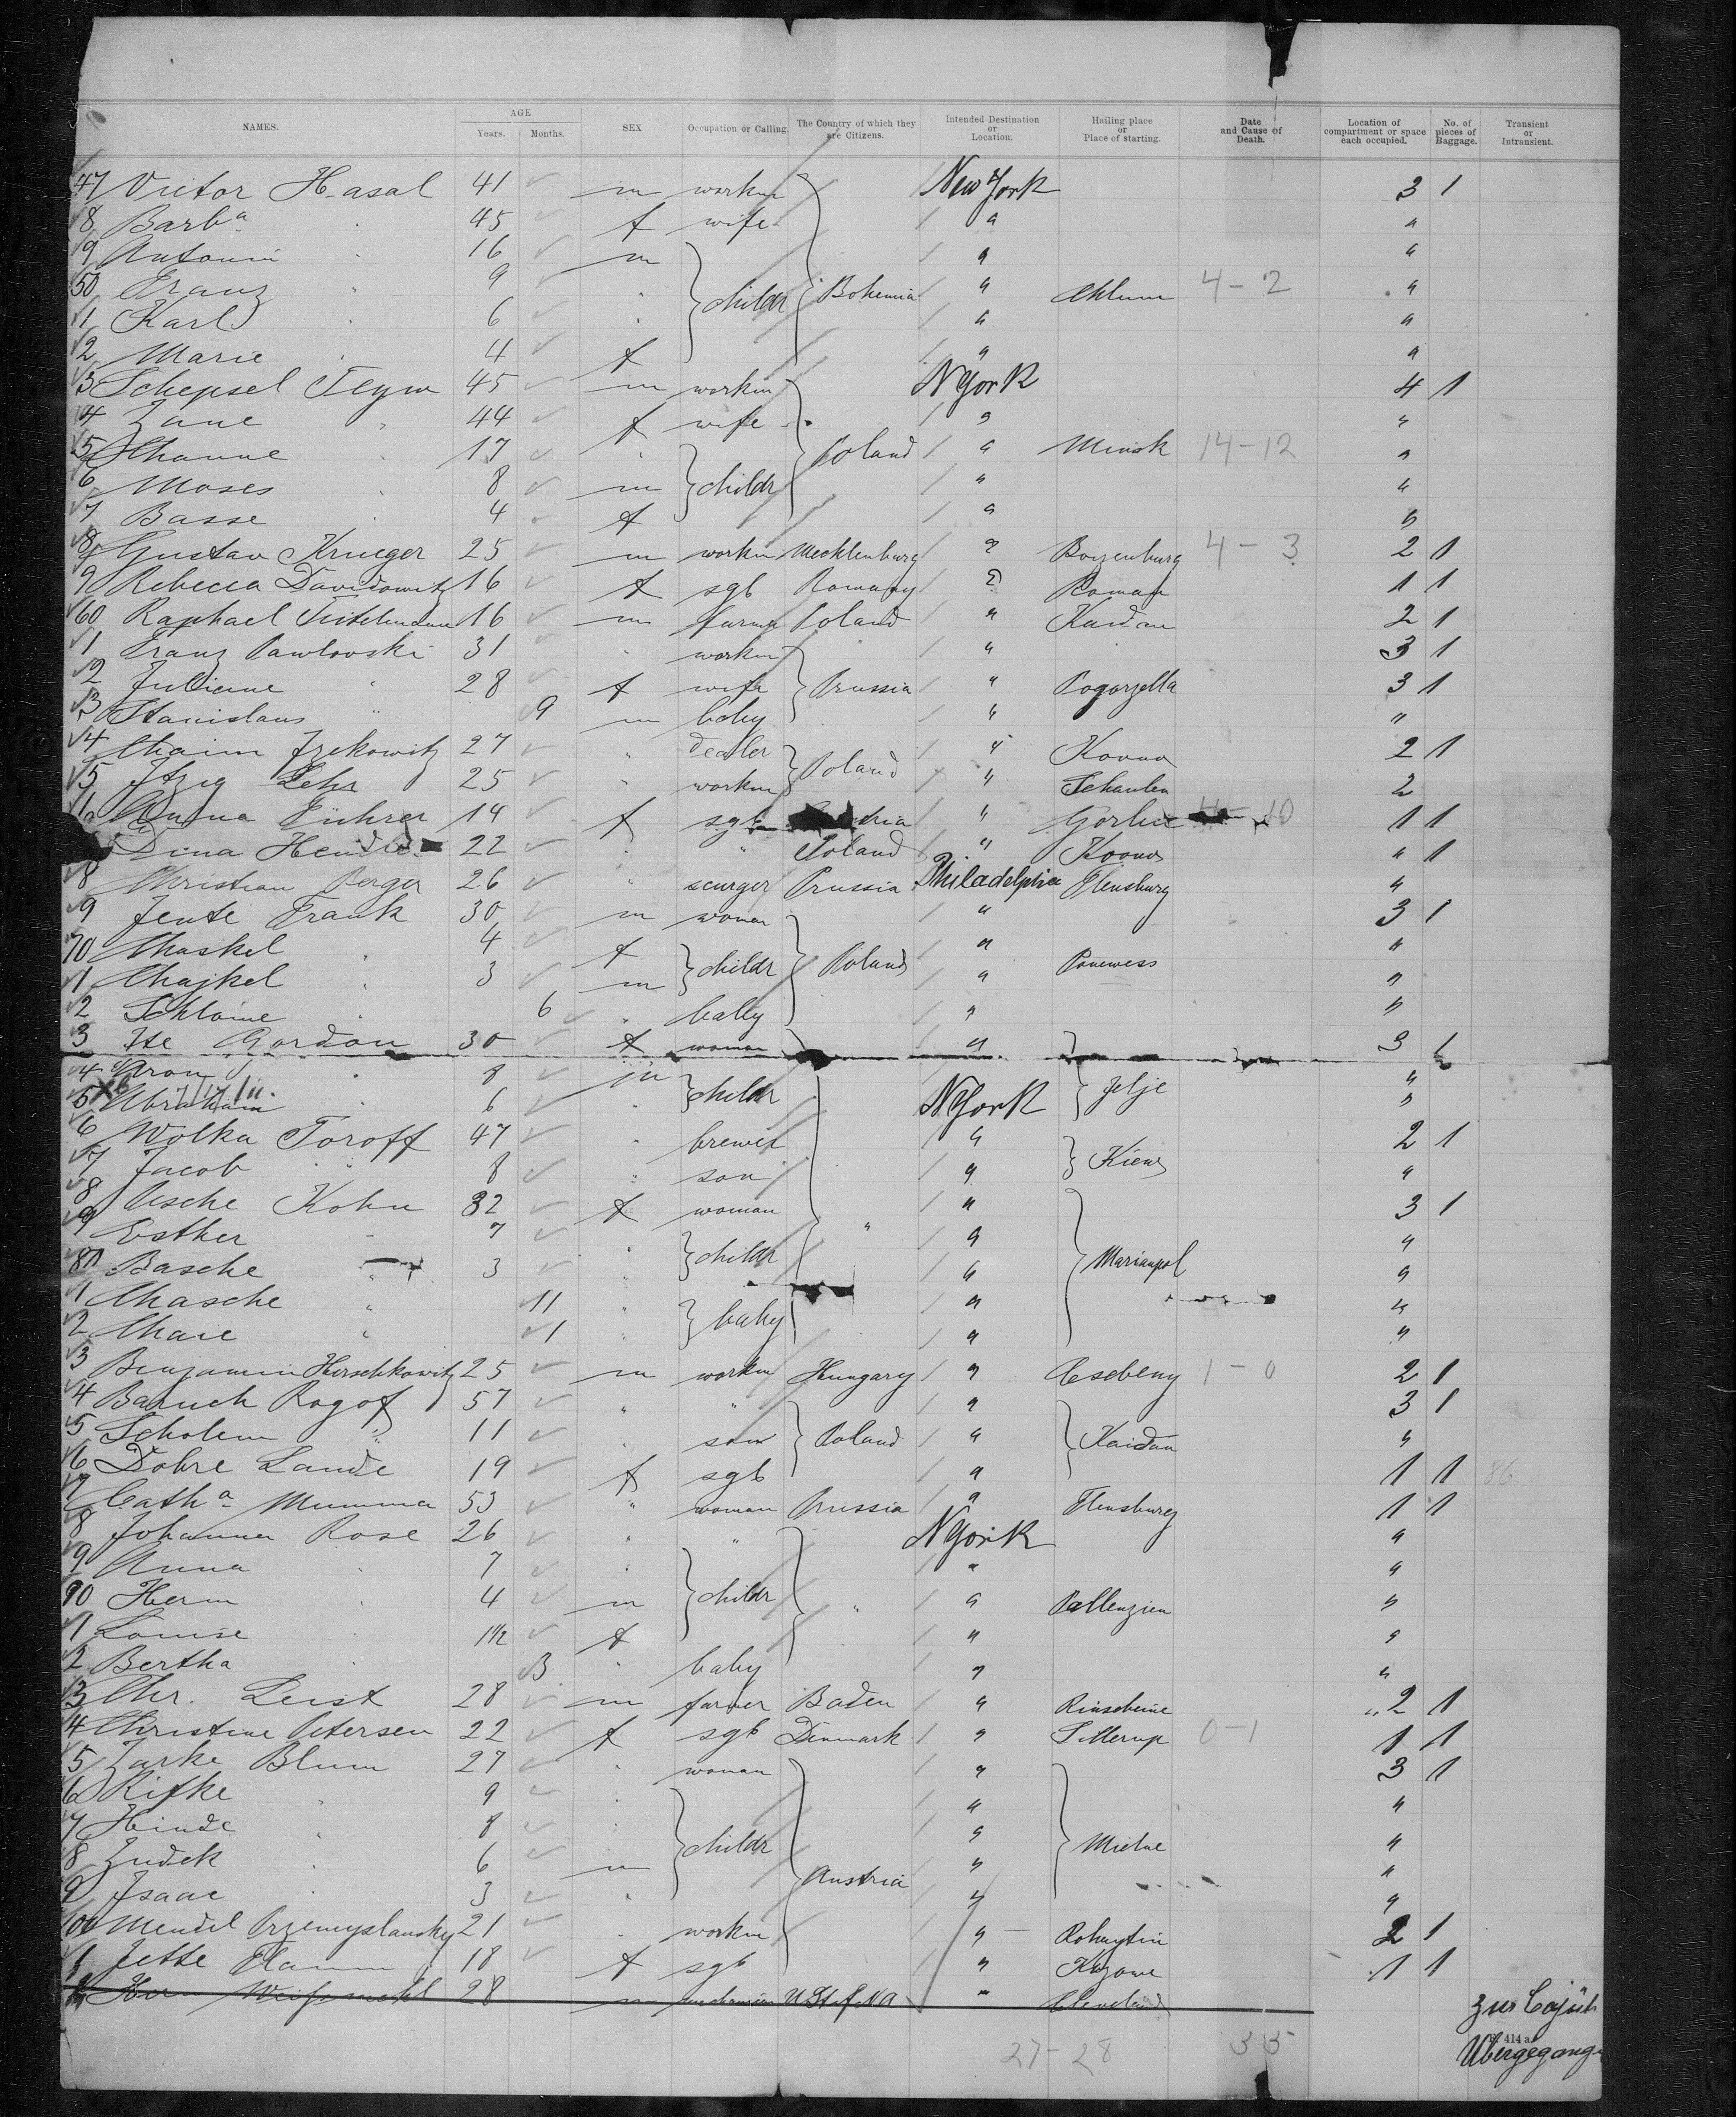 NAMES. AGE Years. Months. SEX Occupation or Calling. The Country of which they are Citizens. Intended Destination or Location. Hailing place or Place of starting. Date and Cause of Death. Location of compartment or space each occupied. No. of pieces of Baggage. Transient or Intransient.
47 Victor Hasal 41 m workm New York 3 1
8 Barba 45 f wife " "
9 Antonin 16 m " "
50 Franz " 9 " childr Bohemia " Chlum 4-2 "
1 Karl " 6 " " "
2 Marie " 4 f " "
3 Schepsel 45 m workm NYork 4 1
4 44 f wife " "
5 Channe " 17 " Poland " Minsk 14-12 "
6 Moses " 8 m childr " "
7 Basse " 4 f " "
8 Gustav Krueger 25 m workm Mecklenburg " Boizenburg 4-3 2 1
9 Rebecca Davidowitz 16 f sgl " Roman 1 1
60 Raphael 16 m farmr Poland " Kaidan 2 1
1 Franz Pawlovski 31 " workm " 3 1
2 Juliane " 28 f wife Prussia " Pogorzella 3 1
3 Stanislaus " 9 m baby " "
4 Chaim Izekowitz 27 " dealer Poland " Kovno 2 1
5 Itzig Lehr 25 " workm " Schaulen 2
6 Anna Führer 14 f sgl " Gorlice 10 1 1
Dina 22 " " Poland " Kovno " 1
8 Christian Berger 26 " Prussia Philadelphia Flensburg "
9 Jente Frank 30 m woman " 3 1
70 Chaskel " 4 f childr Poland " Ponewess "
1 Chajkel " 3 m " "
2 Schloime " 6 " baby " "
3 Ite Gordon 30 f woman " 3 1
4 Aron " 8 m childr Jelje "
5 Abraham " 6 " NYork "
6 Wolka Toroff 47 " brewer " Kiew 2 1
7 Jacob " 8 " son " "
8 Kohn 32 f woman " 3 1
9 Esther " 7 " childr " " "
80 Basche " 3 " " Mariampol "
1 Chasche " 11 " baby " "
2 Chaie " 1 " " "
3 Benjamin Herschkowitz 25 m workm Hungary " 1-0 2 1
4 Baruch Rogof 57 " " " 3 1
5 Scholem " 11 " son Poland " Kaidan "
6 Dobre Lande 19 f sgl " 1 1 86
7 Catha Mumma 53 " woman Prussia " Flensburg 1 1
8 Johanna Rose 26 " " NYork "
9 Anna " 7 " " "
90 Herm " 4 m childr " " "
1 Louise " 1½ f " "
2 Bertha " 3 " baby " "
3 Chr. Leist 28 m farmer Baden " " 2 1
4 Christine Petersen 22 f sgl Denmark " 0-1 1 1
5 Zarke Blum 27 " woman " 3 1
6 Rifke " 9 " " "
7 Hinde " 8 " childr " Mielne "
8 Zudek " 6 m " "
9 Isaac " 3 " Austria " "
100 Mendel Przemyslansky 21 " workm " Rohaytin 2 1
1 Jette Flamm 18 f sgl " Kozowe 1 1
28 m " Cleveland
zur Cajüt
414 a
Übergegang.
27-28 35